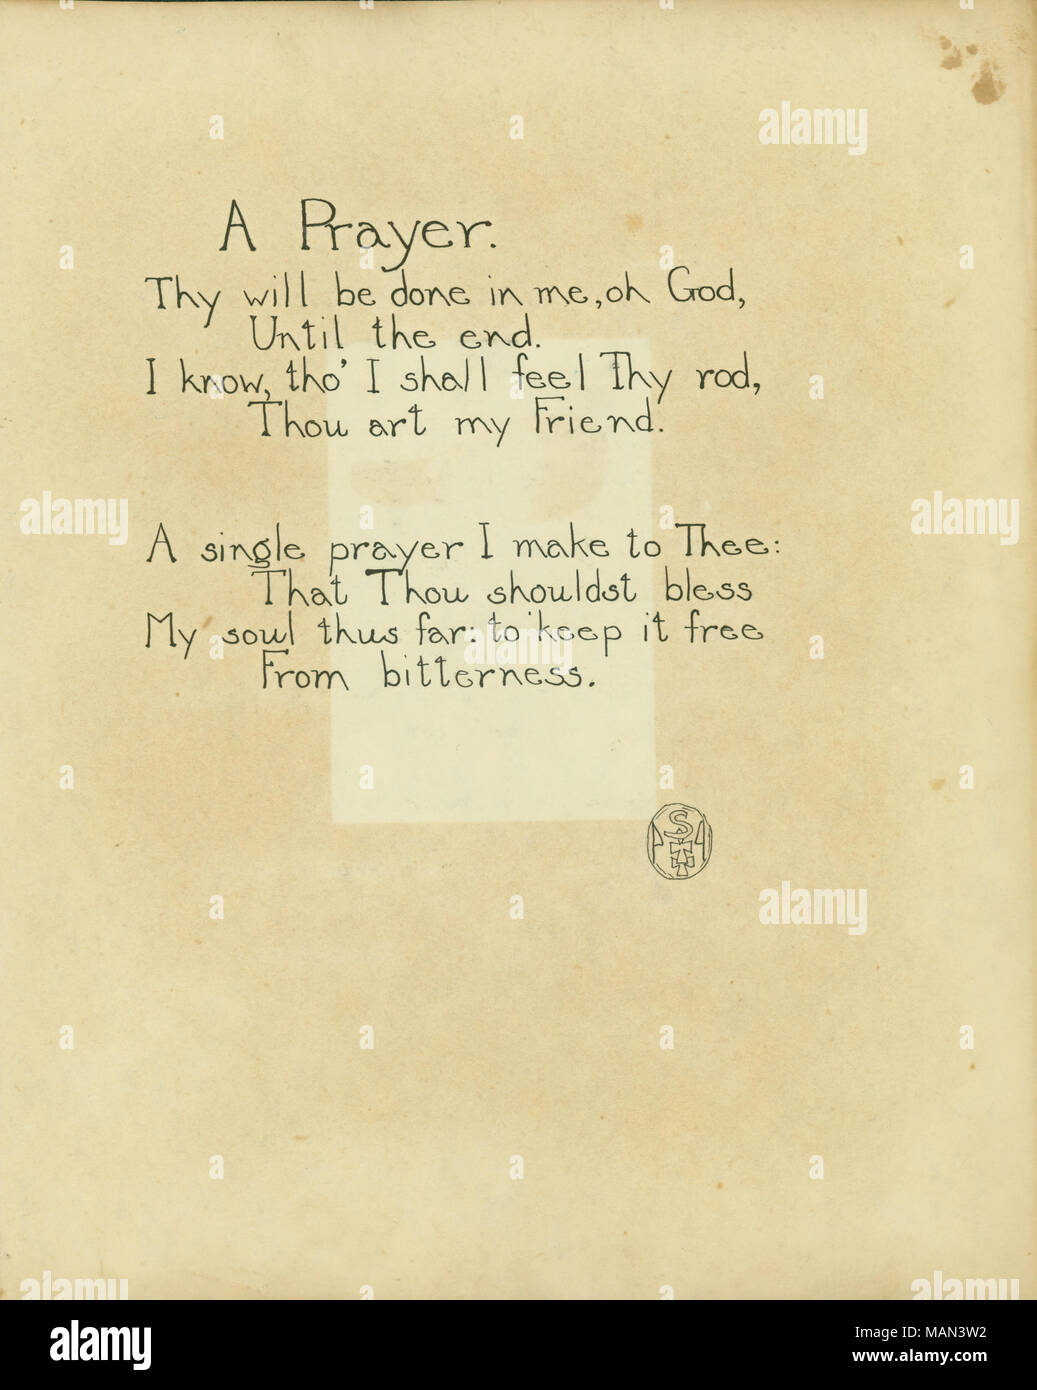 A Prayer.
Thy will be done in me, oh God,
Until the end.
I know, tho' I shall feel Thy rod,
Thou art my Friend.
A single prayer I make to Thee:
That Thou shouldst bless
My soul thus far: to keep it free
From bitterness.
alamy
alamy
Image ID: MAN3W2
www.alamy.com